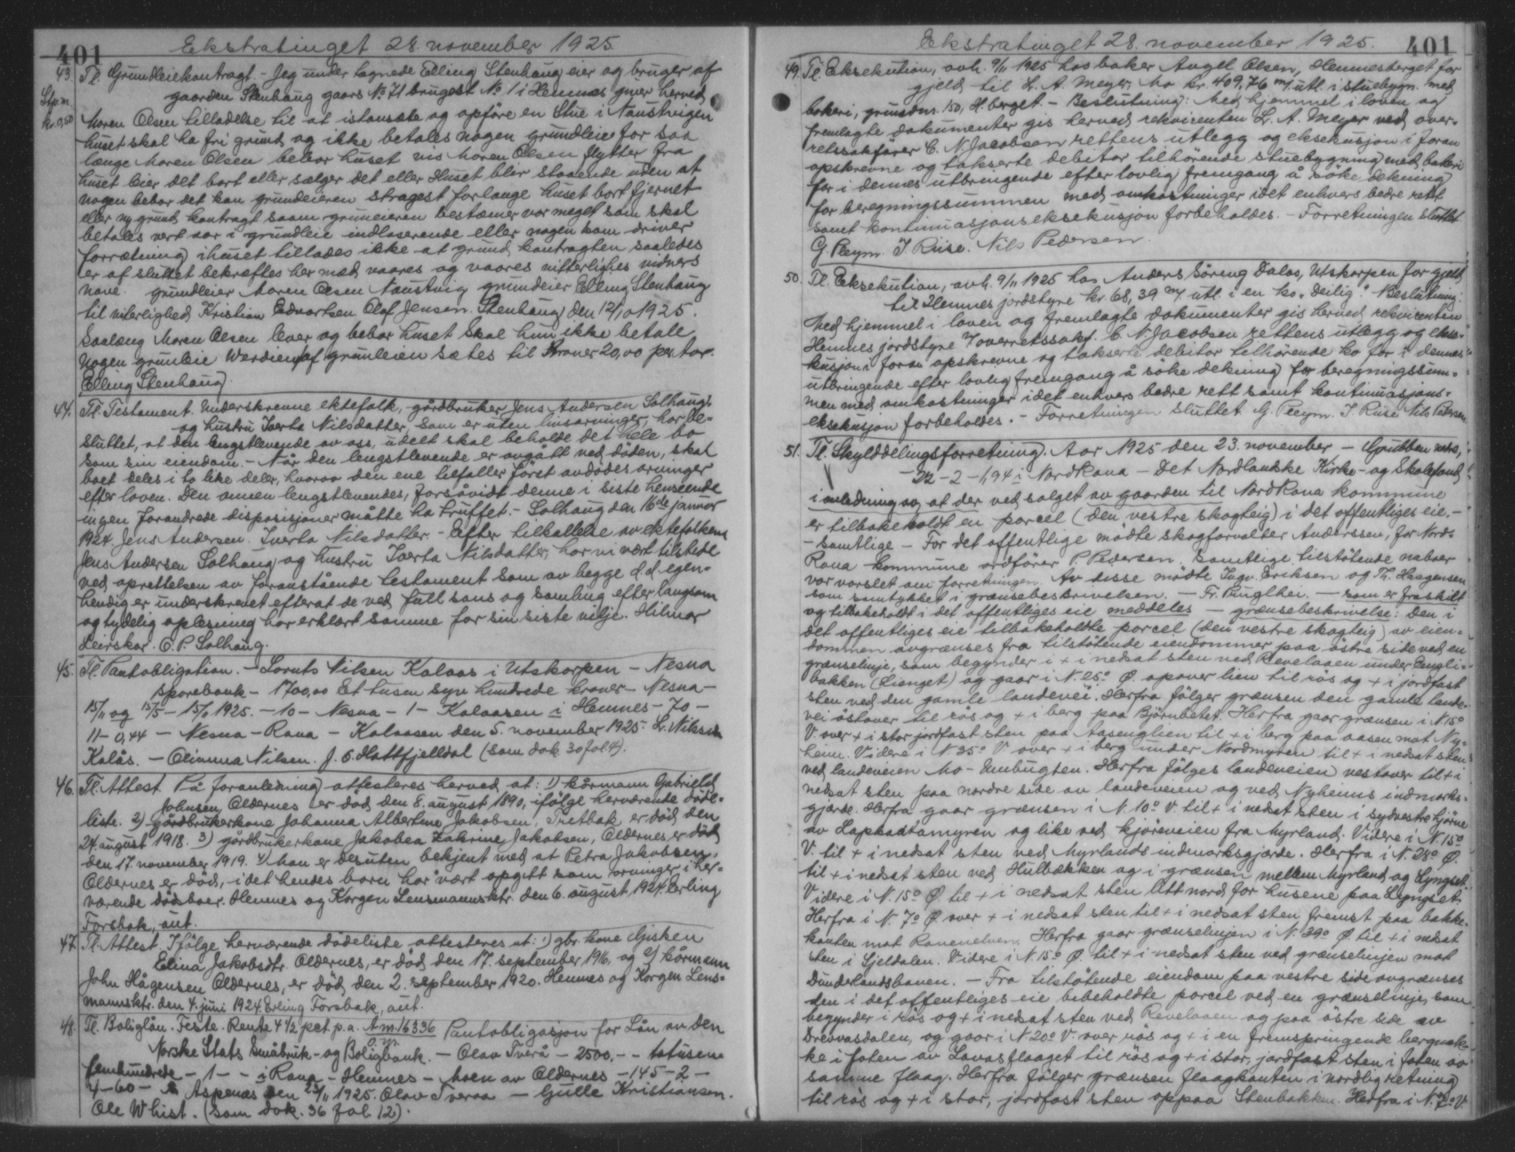 401
Ekstratinget 28. november 1925.
43. Tl. Grundleiekontragt. - Jeg undertegnede Elling Stenhaug eier og bruger af
gaarden Stenhaug gaars No 71 brugest No 1 i Hemnes giver herved
Maren Olsen tilladelse til at istansæte og opføre en Stue i Naustvigen
huset skal ha fri grund og ikke betales nogen grundleie for saa
længe Maren Olsen bebor huset vis Maren Olsen flytter fra
huset leier det bort eller sælger det eller Huset blir staaende uden at
nogen bebor det kan grundeieren stragest forlange huset bort fjernet
eller ny grund kontragt saam gruneieren bestæmer vor meget som skal
betales vert aar i grundleie indlaserende eller nogen som driver
forrætning i huset tillades ikke at grund kontragten saaledes
er af sluttet bekræftes her med vaares og vaares vitterlighes vidners
nave. grundleier Maren Olsen Naustvig gruneier Elling Stenhaug
til viterlighed Kristian Edvartsen Olof Jensen. Stenhaug den 12/10 1925.
Saalæng Maren Olsen lever og bebor huset skal hun ikke betale
nogen grunleie Werdien af grunleien sætes til Kroner 20,00 per aar.
Elling Stenhaug
44. Tl. Testament. Underskrevne ektefolk, gårdbruker Jens Andersen Solhaug
og hustru Iverta Nilsdatter, som er uten livsarvinger, har be-
sluttet, at den lengstlevende av oss, udelt skal beholde det hele bo
som sin eiendom. - Når den lengstlevende er avgått ved døden, skal
boet deles i to like deler, hvorav den ene tilfaller først avdødes arvinger
efter loven. Den annen lengstlevendes, forsåvidt denne i siste henseende
ingen forandrede disposisjoner måtte ha truffet. - Solhaug den 16de januar
1924. Jens Andersen. Iverta Nilsdatter. - Efter tilkallelse av ektefolkene
Jens Andersen Solhaug og hustru Iverta Nilsdatter, har vi vært tilstede
ved oprettelsen av foranstående testament som av begge d.d. egen-
hendig er underskrevet efterat de ved full sans og samling efter langsom
og tydelig oplesning har erklært samme for sin siste vilje. Hilmar
Leirskar. O. P. Solhaug.
45. Tl. Pantobligation. - Lornts Nilsen Kalaas i Utskarpen - Nesna
Sparebank - 1700,00 Et tusen syv hundrede kroner - Nesna -
15/11 og 15/5 - 15/11 1925. - 10 - Nesna - 1 - Kalaasen i Hemnes - 70 -
11 - 0,44 - Nesna - Rana - Kalaasen den 5. november 1925. L. Nilsen
Kalås. - Olianna Nilsen. J. S. Hattfjelldal (som dok 30 fol 9).
46. Tl. Attest. På foranledning attesteres herved at: 1) kårmann Gabriel
Johnsen, Oldernes er død den 8. august 1890, ifølge herværende døde-
liste. 2) Gårdbrukerkone Johanna Albertine Jakobsen, Tretbak er død den
24. august 1918. 3) gårdbrukerkone Jakobea Katrine Jakobsen, Oldernes er død
den 17 november 1919. 4) han er desuten bekjent med at Petra Jakobsen,
Oldernes er død, i det hendes barn har vært opgitt som arvinger i her-
værende dødsboer. Hemnes og Korgen Lensmannsktr. den 6. august 1924. Erling
Forsbak, aut.
47. Tl. Attest. Ifølge herværende dødeliste attesteres at: 1) gbr. kone
Elina Jakobsdtr. Oldernes, er død den 17. september og 2) kårmann
John Hågensen Oldernes, er død den 2. september 1920. Hemnes og Korgen Lens-
mannsktr. den 4. juni 1924. Erling Forsbak, aut.
48. Tl. Boliglån. Feste. Rente 4 1/2 pct p.a. Am. 16336 Pantobligasjon for Lån av den
Norske Stats Småbruk- og Boligbank. - Olav Tverå - 2500, - - totusen
femhundrede - 1 - - i Rana - Hemnes - Moen av Oldernes - 145 - 2 -
4 - 60 - Aspenæs den 25/11 1925. Olav Tveraa - Gulle Kristiansen.
Ole Whist. (som dok. 36 fol 12).
Ekstratinget 28. november 1925.
401
49. Tl. Eksekution, avh. 9/11 1925 hos baker Angel Olsen, Hemnesberget for
gjeld til L. A. Meyer. Mo kr. 409,76 m/ utl. i stuebygn. med
bakeri, grundnr. 150, H.berget - Beslutning: Med hjemmel i loven og
fremlagte dokumenter gis herved rekvirenten L. A. Meyer ved over-
retssakfører C. N. Jacobsen rettens utlegg og eksekusjon i foran
opskrevne og takserte debitor tilhørende stuebygning med bakeri
for i dennes utbringende efter lovlig fremgang å søke dekning
for beregningssummen med omkostninger idet enhvers bedre rett
samt kontinuasjonseksekusjon forbeholdes. - Forretningen sluttet
G Pleym. I Ruse. Nils Pedersen.
50. Tl. Eksekution, avh. 9/11 1925 hos Anders Søreng Dalos, Utskarpen for gjeld
til Hemnes jordstyre kr 68,39 m/ utl. i en ko „Deilig". Beslutning:
Med hjemmel i loven og fremlagte dokumenter gis herved rekvirenten
Hemnes jordstyre v/ overretssakf. C. N. Jacobsen rettens utlegg og ekse-
kusjon i foran opskrevne og takserte debitor tilhørende ko for i dennes
utbringende efter lovlig fremgang å søke dekning for beregningssum-
men med omkostninger idet enhvers bedre rett samt kontinuasjons-
eksekusjon forbeholdes. - Forretningen sluttet G Pleym. I Ruse Nils Pedersen
51. Tl. Skylddelingsforretning. Aar 1925 den 23. november -
- 22 - 2 - 1,94 i Nordrana - Det Nordlandske Kirke- og Skolefond
i anledning av at der ved salget av gaarden til Nordrana kommune
er tilbakeholdt en parcel (den vestre skogteig) i det offentliges eie. -
- samtlige - For det offentlige mødte skogforvalter Anderssen, for Nord-
Rana kommune ordfører P. Pedersen. Samtlige tilstøtende naboer
var varslet om forretningen. Av disse mødte Ingv. Eriksen og Th. Haagensen
som samtykket i grænsebeskrivelsen. - Fr. Englhei. - som er fraskilt
og tilbakeholdt i det offentliges eie meddeles - grænsebeskrivelse: Den i
det offentliges eie tilbakeholdte parcel (den vestre skogteig) av eien-
dommen avgrænses fra tilstøtende eiendommer paa østre side ved en
grænselinje, som begynder i + i nedsat sten ved Revelaaen under Engli-
bakken (Lienget) og gaar i N. 25° Ø. opover lien til røs og + i jordfast
sten ved den gamle landevei. Herfra følger grænsen den gamle lande-
vei østover til røs og + i berg paa Bjørnbetet. Herfra gaar grænsen i N. 15°
V. over + i stor jordfast sten paa Aasenglien til + i berg paa aasen mot Ny-
heim. Videre i N. 35° V. over + i berg under Nordmyren til + i nedsat sten
ved landeveien Mo - Umbugten. Herfra følges landeveien vestover til + i
nedsat sten paa nordre side av landeveien og ved Nyheims indmarks-
gjærde. Herfra gaar grænsen i N. 10° V. til + i nedsat sten i sydøstre hjørne
av Lapkaatamyren og like ved kjøreveien fra Myrland. Videre i N. 15°
V. til + i nedsat sten ved Myrlands indmarksgjærde. Herfra i N. 28° Ø.
til + i nedsat sten ved Hulbækken og i grænsen mellem Myrland og Lyngset.
Videre i N. 15° Ø. til + i nedsat sten litt nord for husene paa Lyngset.
Herfra i N. 7° Ø over + i nedsat sten til + i nedsat sten fremst paa bakke-
kanten mot Ranenelven. Herfra gaar grænselinjen i N. 39° Ø. til + i nedsat
sten i Gjeldalen. Videre i N. 15° Ø. til + i nedsat sten ved grænselinjen mot
Dunderlandsbanen. - Fra tilstøtende eiendom paa vestre side avgrænses
den i det offentliges eie beholdte parcel ved en grænselinje, som
begynder i røs og + i nedsat sten ved Revelaaen og paa østre side av
Drevvasdalen, og gaar i N. 20° V. over røs og + i en fremspringende bergnak-
ke i foten av Lavasflaaget til røs og + i stor, jordfast sten i foten av
samme flaag. Herfra følger grænsen flaagkanten i nordlig retning
til røs og + i stor, jordfast sten oppaa Stenbakken. Herfra i N. 7° V.